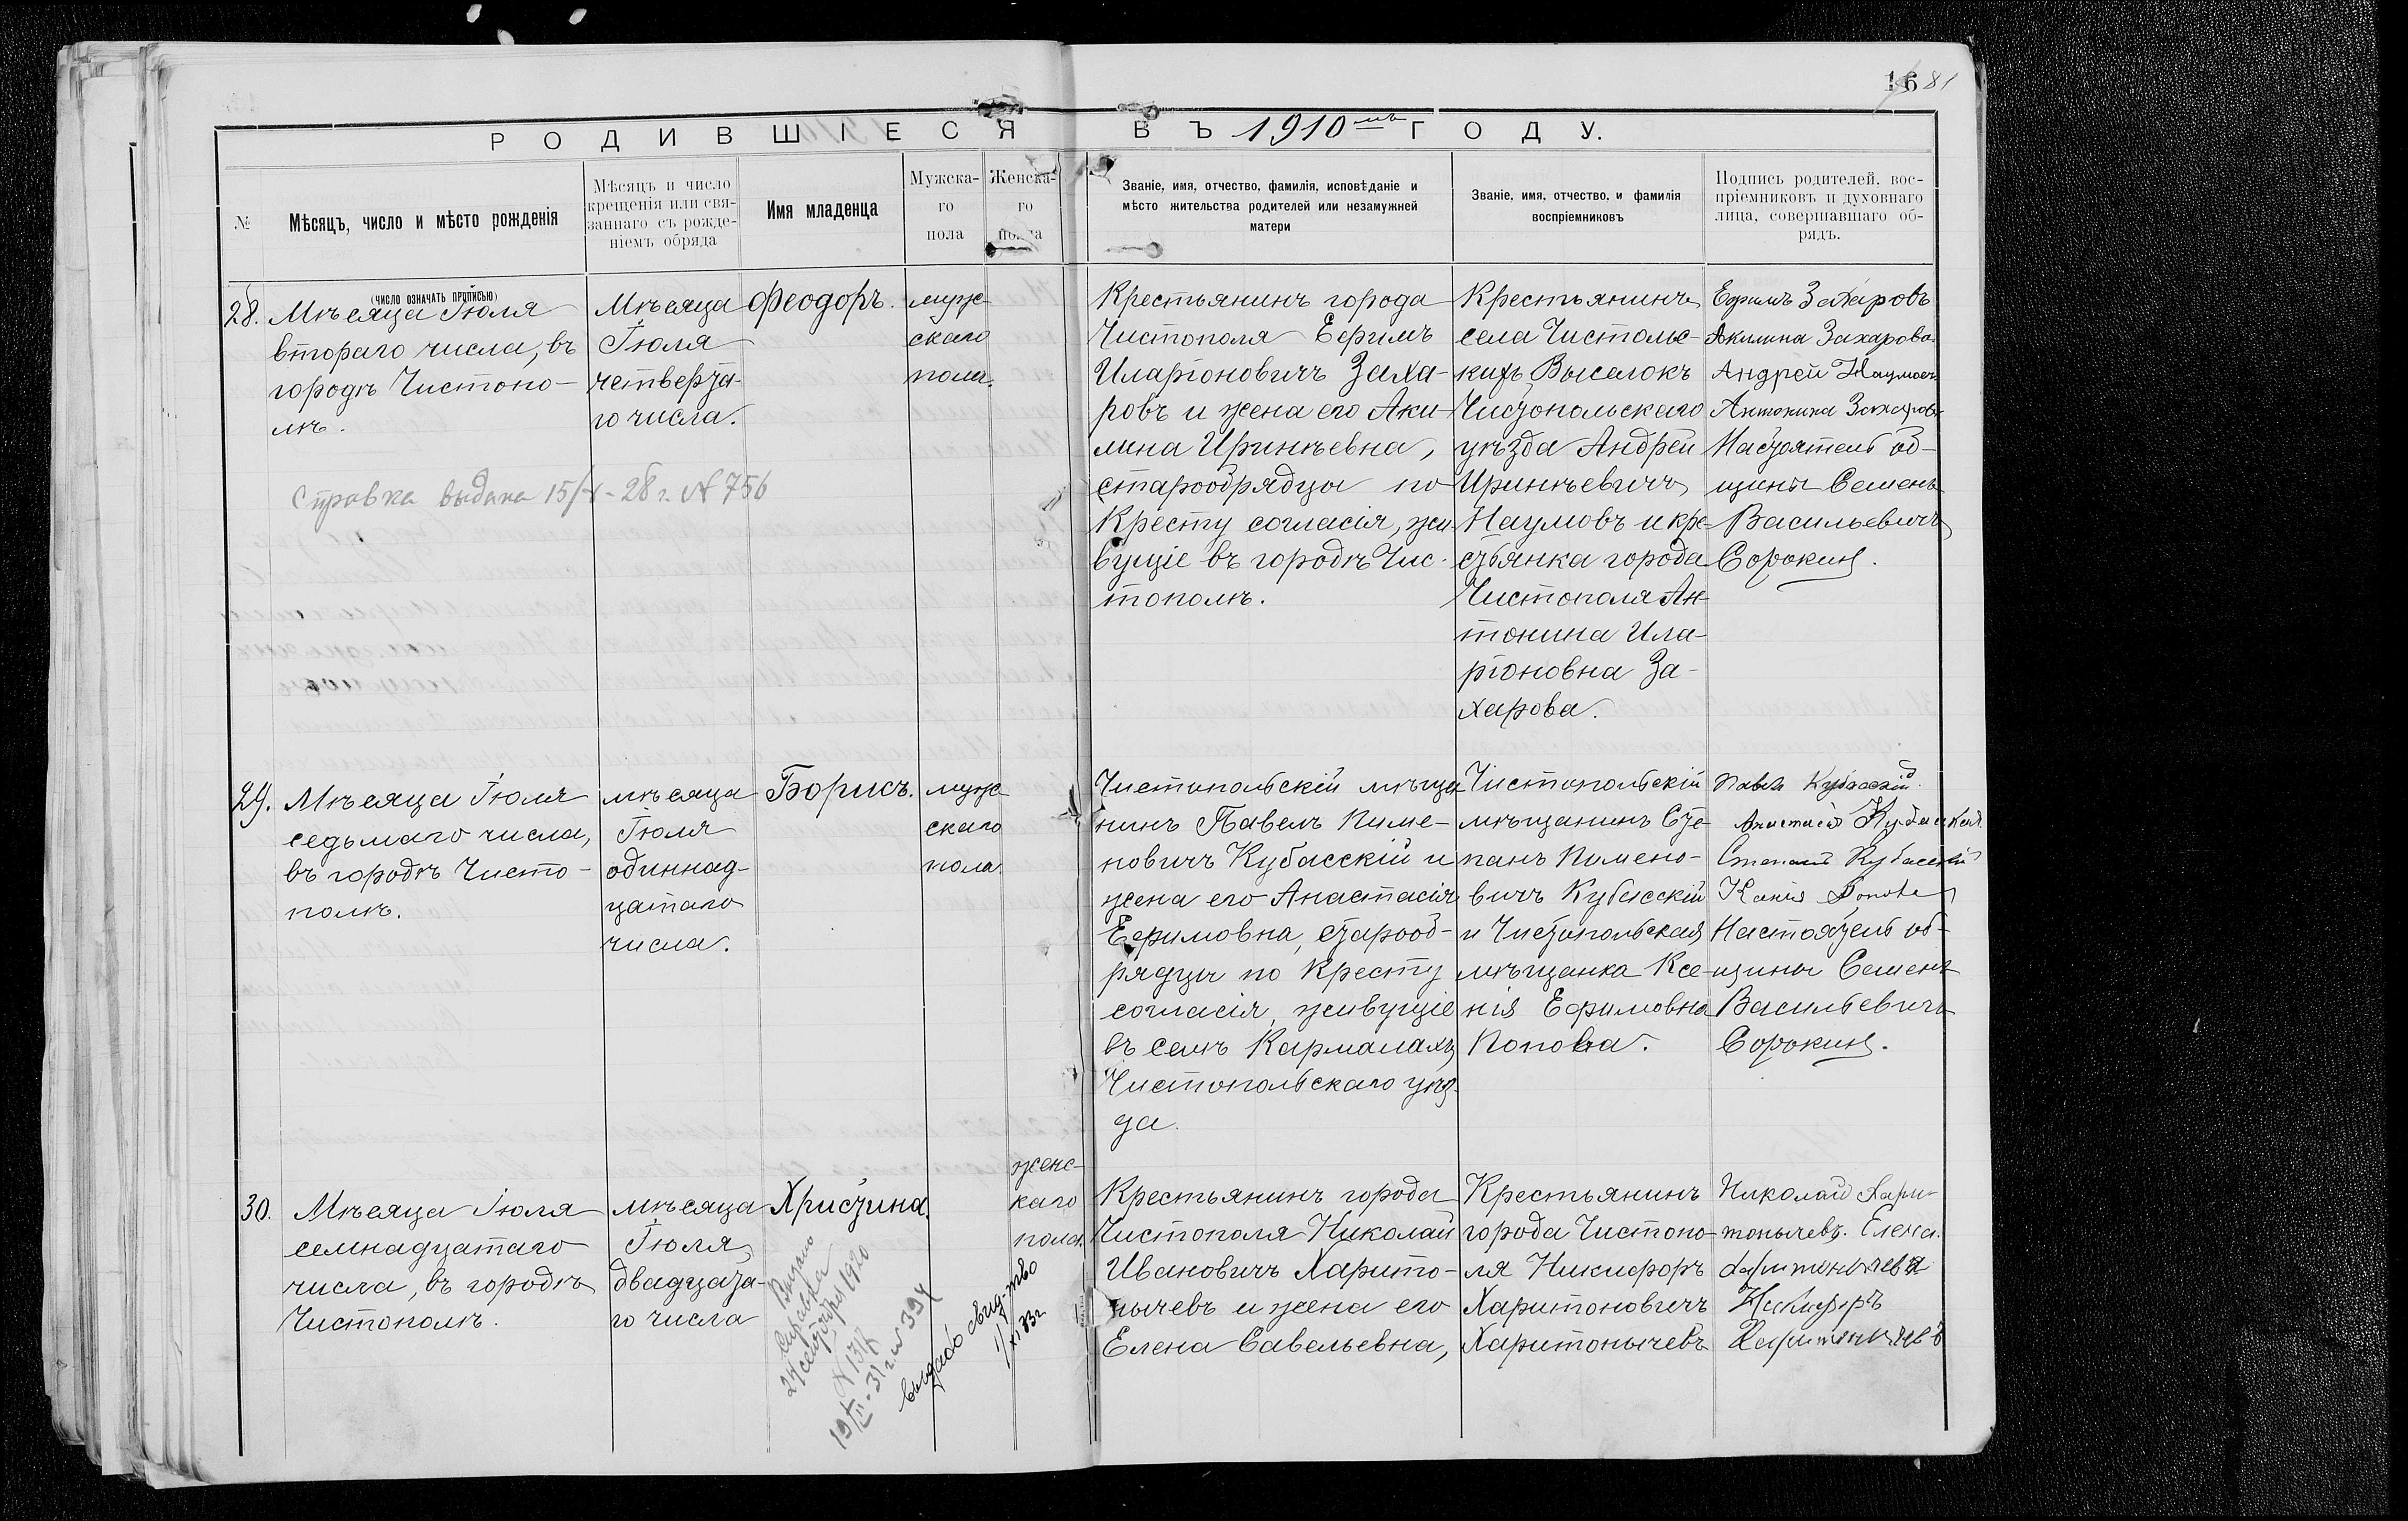 16 81
РОДИВШІЕСЯ ВЪ 1910мъ ГОДУ.
№
Мѣсяцъ, число и мѣсто рожденія
(число означать прописью)
Мѣсяцъ и число
крещенія или свя-
заннаго съ рожде-
ніемъ обряда
Имя младенца
Мужска-
го
пола
Женска-
го
пола
Званіе, имя, отчество, фамилія, исповѣданіе и
мѣсто жительства родителей или незамужней
матери
Званіе, имя, отчество, и фамилія
воспріемниковъ
Подпись родителей, вос-
пріемниковъ и духовнаго
лица, совершавшаго об-
рядъ.
28.
Мѣсяца Іюля
втораго числа, въ
городѣ Чистопо-
лѣ.
Мѣсяца
Іюля
четверта-
го числа.
Феодоръ.
муж-
скаго
пола.
Крестьянинъ города
Чистополя Ефимъ
Иларіоновичъ Заха-
ровъ и жена его Аки-
лина Иринѣевна,
старообрядцы по
Кресту согласія, жи-
вущіе въ городѣ Чис-
тополѣ.
Крестьянинъ
села Чистопольс-
кихъ Выселокъ
Чистопольскаго
уѣзда Андрей
Иринѣевичъ
Наумовъ и кре-
стьянка города
Чистополя Ан-
тонина Ила-
ріоновна За-
харова.
Ефимъ Захаровъ
Акилина Захарова
Андрей Наумовъ
Антонина Захарова
Настоятель об-
щины Семенъ
Васильевичъ
Сорокинъ.
Справка выдана 15/X-28 г. № 756
29.
Мѣсяца Іюля
седьмаго числа,
въ городѣ Чисто-
полѣ.
мѣсяца
Іюля
одиннад-
цатаго
числа.
Борисъ.
муж-
скаго
пола
Чистопольскій мѣща-
нинъ Павелъ Пиме-
новичъ Кубасскій и
жена его Анастасія
Ефимовна, старооб-
рядцы по Кресту
согласія, живущіе
въ селѣ Кармалахъ
Чистопольскаго уѣз-
да.
Чистопольскій
мѣщанинъ Сте-
панъ Пимено-
вичъ Кубасскій
и Чистопольская
мѣщанка Ксе-
нія Ефимовна
Попова.
Павелъ Кубасскій
Анастасія Кубасская
Степанъ Кубасскій
Ксенія Попова
Настоятель об-
щины Семенъ
Васильевичъ
Сорокинъ.
30.
Мѣсяца Іюля
семнадцатаго
числа, въ городѣ
Чистополѣ.
мѣсяца
Іюля
двадцата-
го числа
Христина.
женс-
каго
пола.
Крестьянинъ города
Чистополя Николай
Ивановичъ Харито-
нычевъ и жена его
Елена Савельевна,
Крестьянинъ
города Чистопо-
ля Никифоръ
Харитоновичъ
Харитонычевъ
Николай Хари-
тонычевъ. Елена
Харитонычева
Никифоръ
Харитонычевъ
справка
1920
19/II-31 г. № 394
выдано свид-тво
1/XI 33 г.